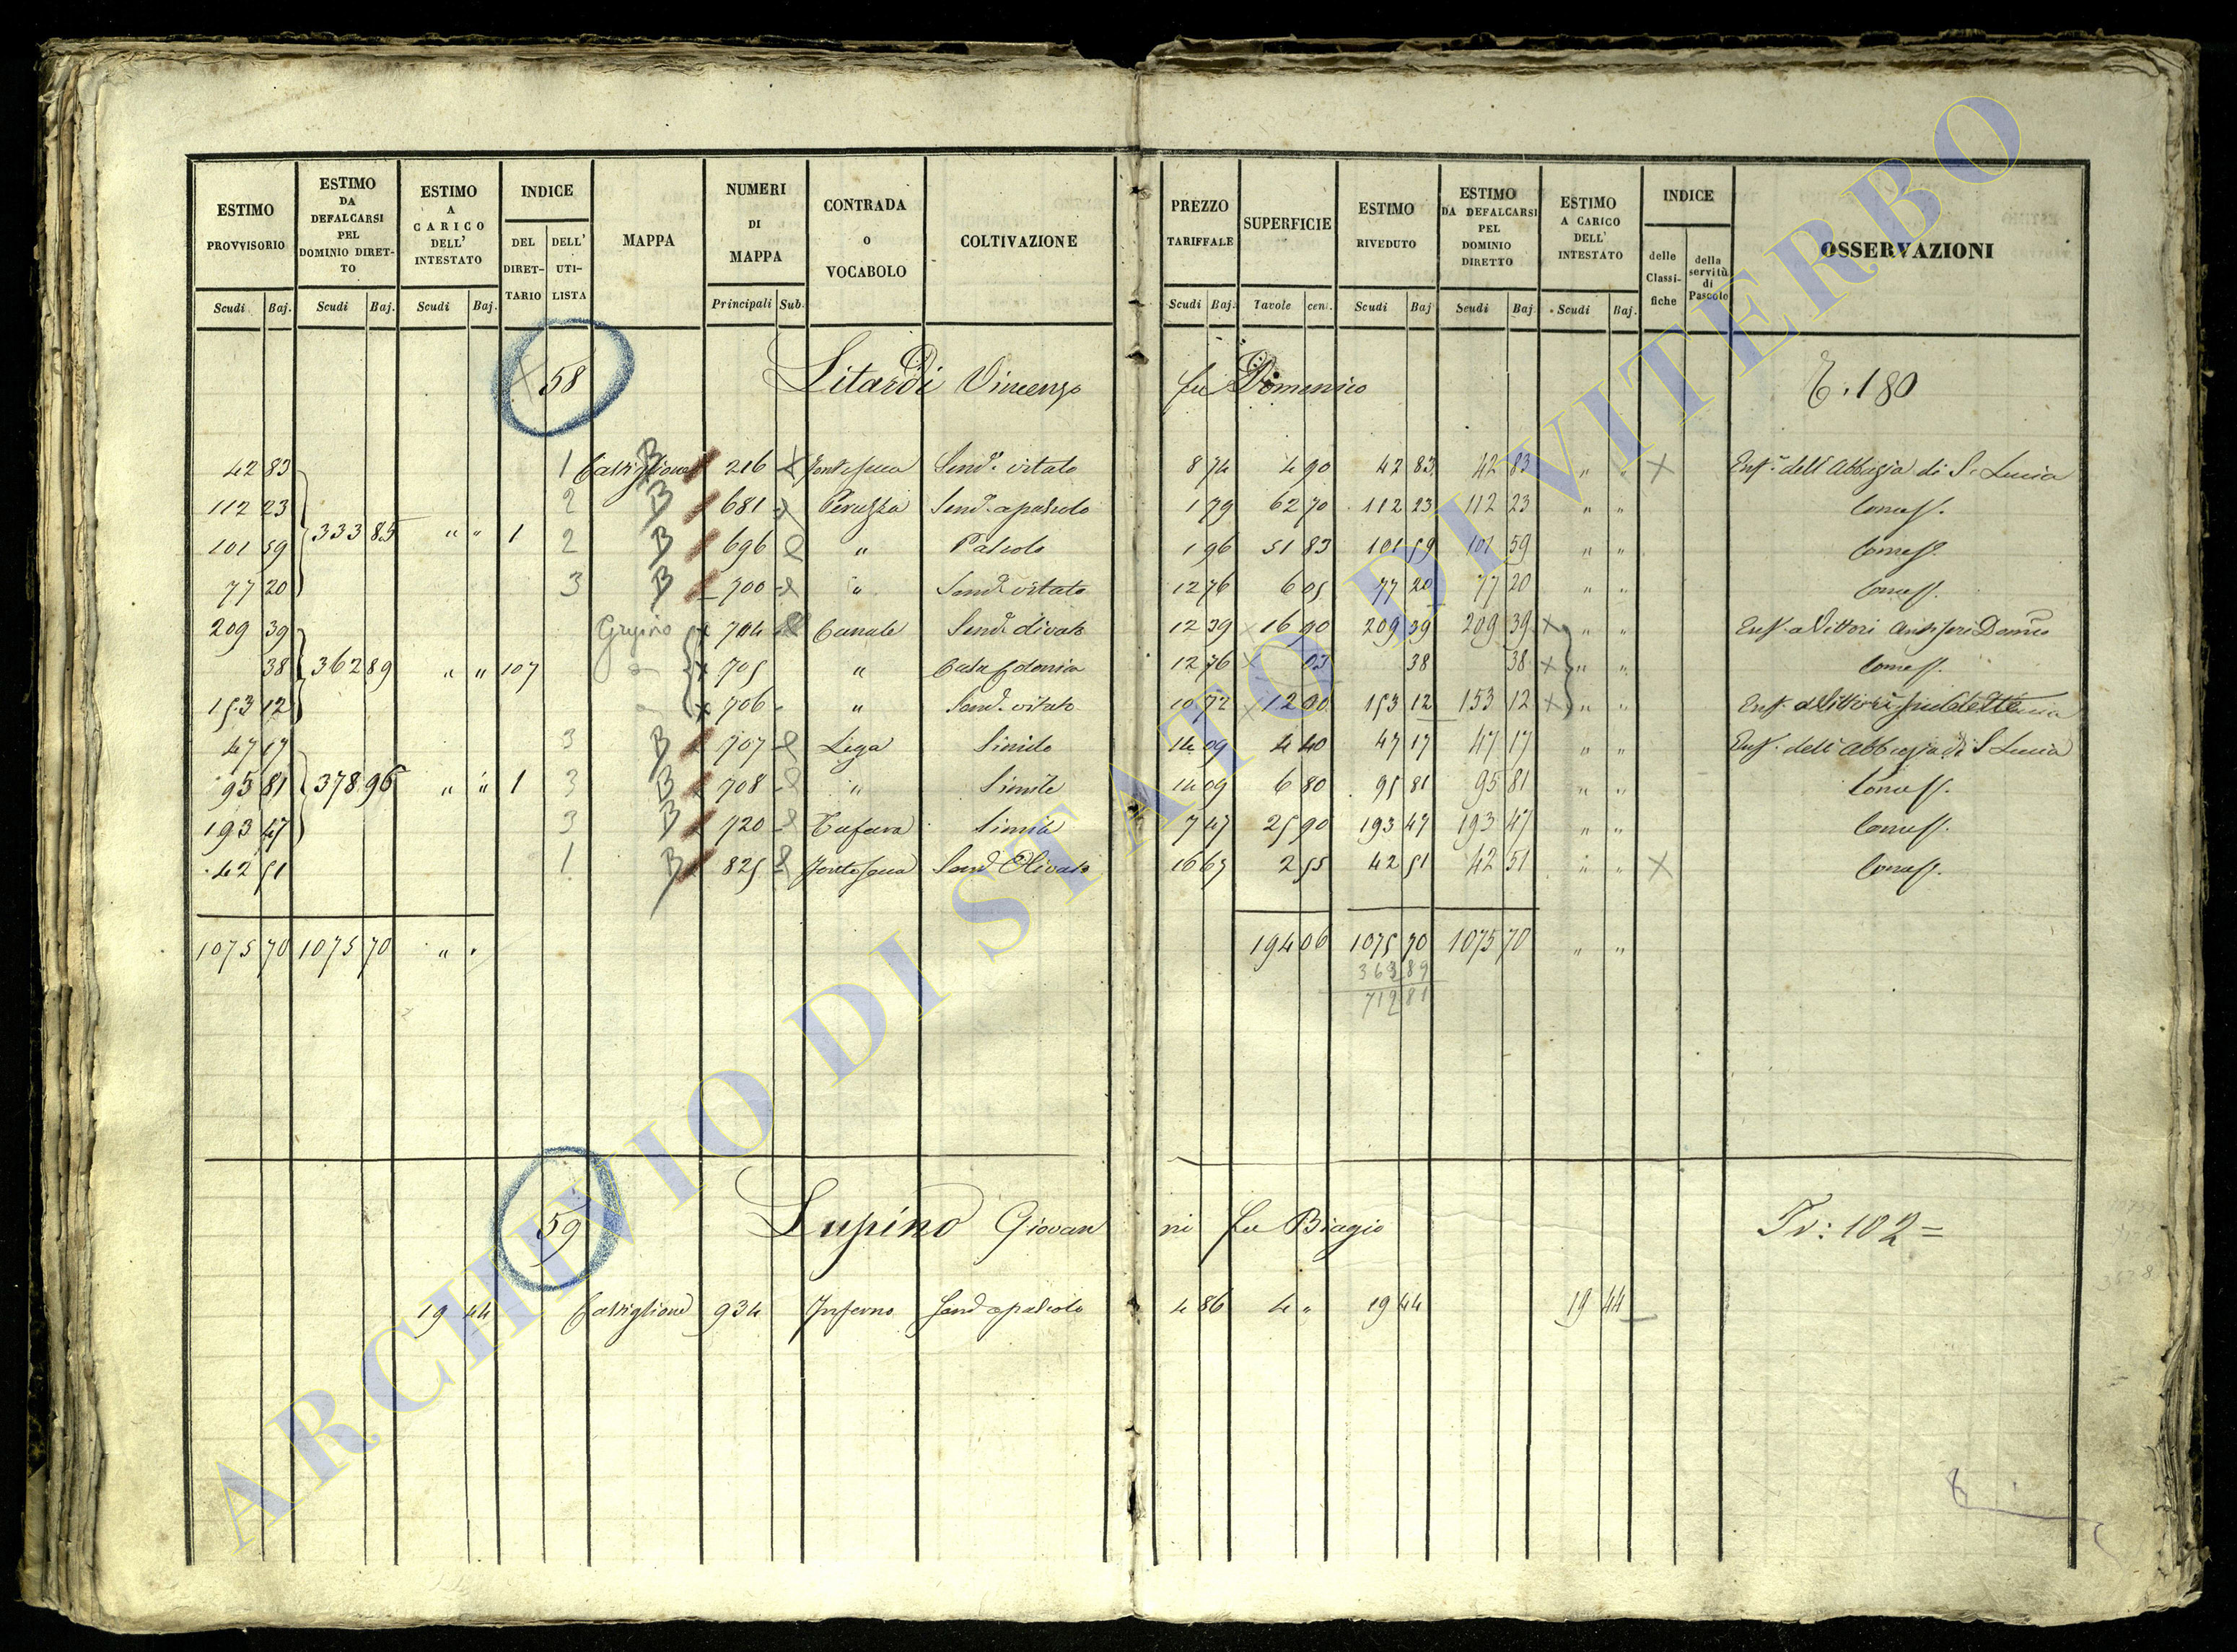 ESTIMO PROVVISORIO
ESTIMO DA DEFALCARSI PEL DOMINIO DIRETTO
ESTIMO A CARICO DELL' INTESTATO
INDICE
DEL DIRETTARIO
DELL' UTILISTA
MAPPA
NUMERI DI MAPPA
CONTRADA O VOCABOLO
COLTIVAZIONE
PREZZO TARIFFALE
SUPERFICIE
ESTIMO RIVEDUTO
ESTIMO DA DEFALCARSI PEL DOMINIO DIRETTO
ESTIMO A CARICO DELL' INTESTATO
INDICE
delle Classifiche
della servitù di Pascolo
OSSERVAZIONI
Scudi Baj. Scudi Baj. Scudi Baj. Principali Sub. Scudi Baj. Tavole cent. Scudi Baj Scudi Baj Scudi Baj.
58 Litardi Vincenzo fu Domenico 180
42 83 1 Castiglione B 216 Send. vitato 8 74 4 90 42 83 42 83 " " X Enf. dell'Abbazia di S. Lucia
112 23 2 B 681 Send. a pascolo 1 79 62 70 112 23 112 23 " "
333 85 " " 1
101 59 2 B 696 " Pascolo 1 96 51 83 101 59 101 59 " "
77 20 3 B 700 " Send. vitato 12 76 6 05 77 20 77 20 " "
209 39 704 Canale 12 39 16 90 209 39 209 39 X " "
38 362 89 " " 107 705 " Casa Colonica 12 76 03 38 38 X " "
153 12 706 " Send. vitato 153 12 153 12 X " "
47 17 3 B 707 Liga Simile 14 09 4 40 47 17 47 17 " " Enf. dell'Abbazia di S. Lucia
95 81 378 96 " " 1 3 B 708 " Simile 14 09 6 80 95 81 95 81 " "
193 47 3 B 720 Simile 7 47 25 90 193 47 193 47 " "
42 51 1 B 825 Send. Olivato 16 67 2 55 42 51 42 51 " " X
1075 70 1075 70 " " 194 06 1075 70 1075 70 " "
712 81
59 Lupino Giovanni fu Biagio 102 =
19 44 Castiglione 934 Inferno Send. a pascolo 4 86 4 " 19 44 19 44
ARCHIVIO DI STATO DI VITERBO